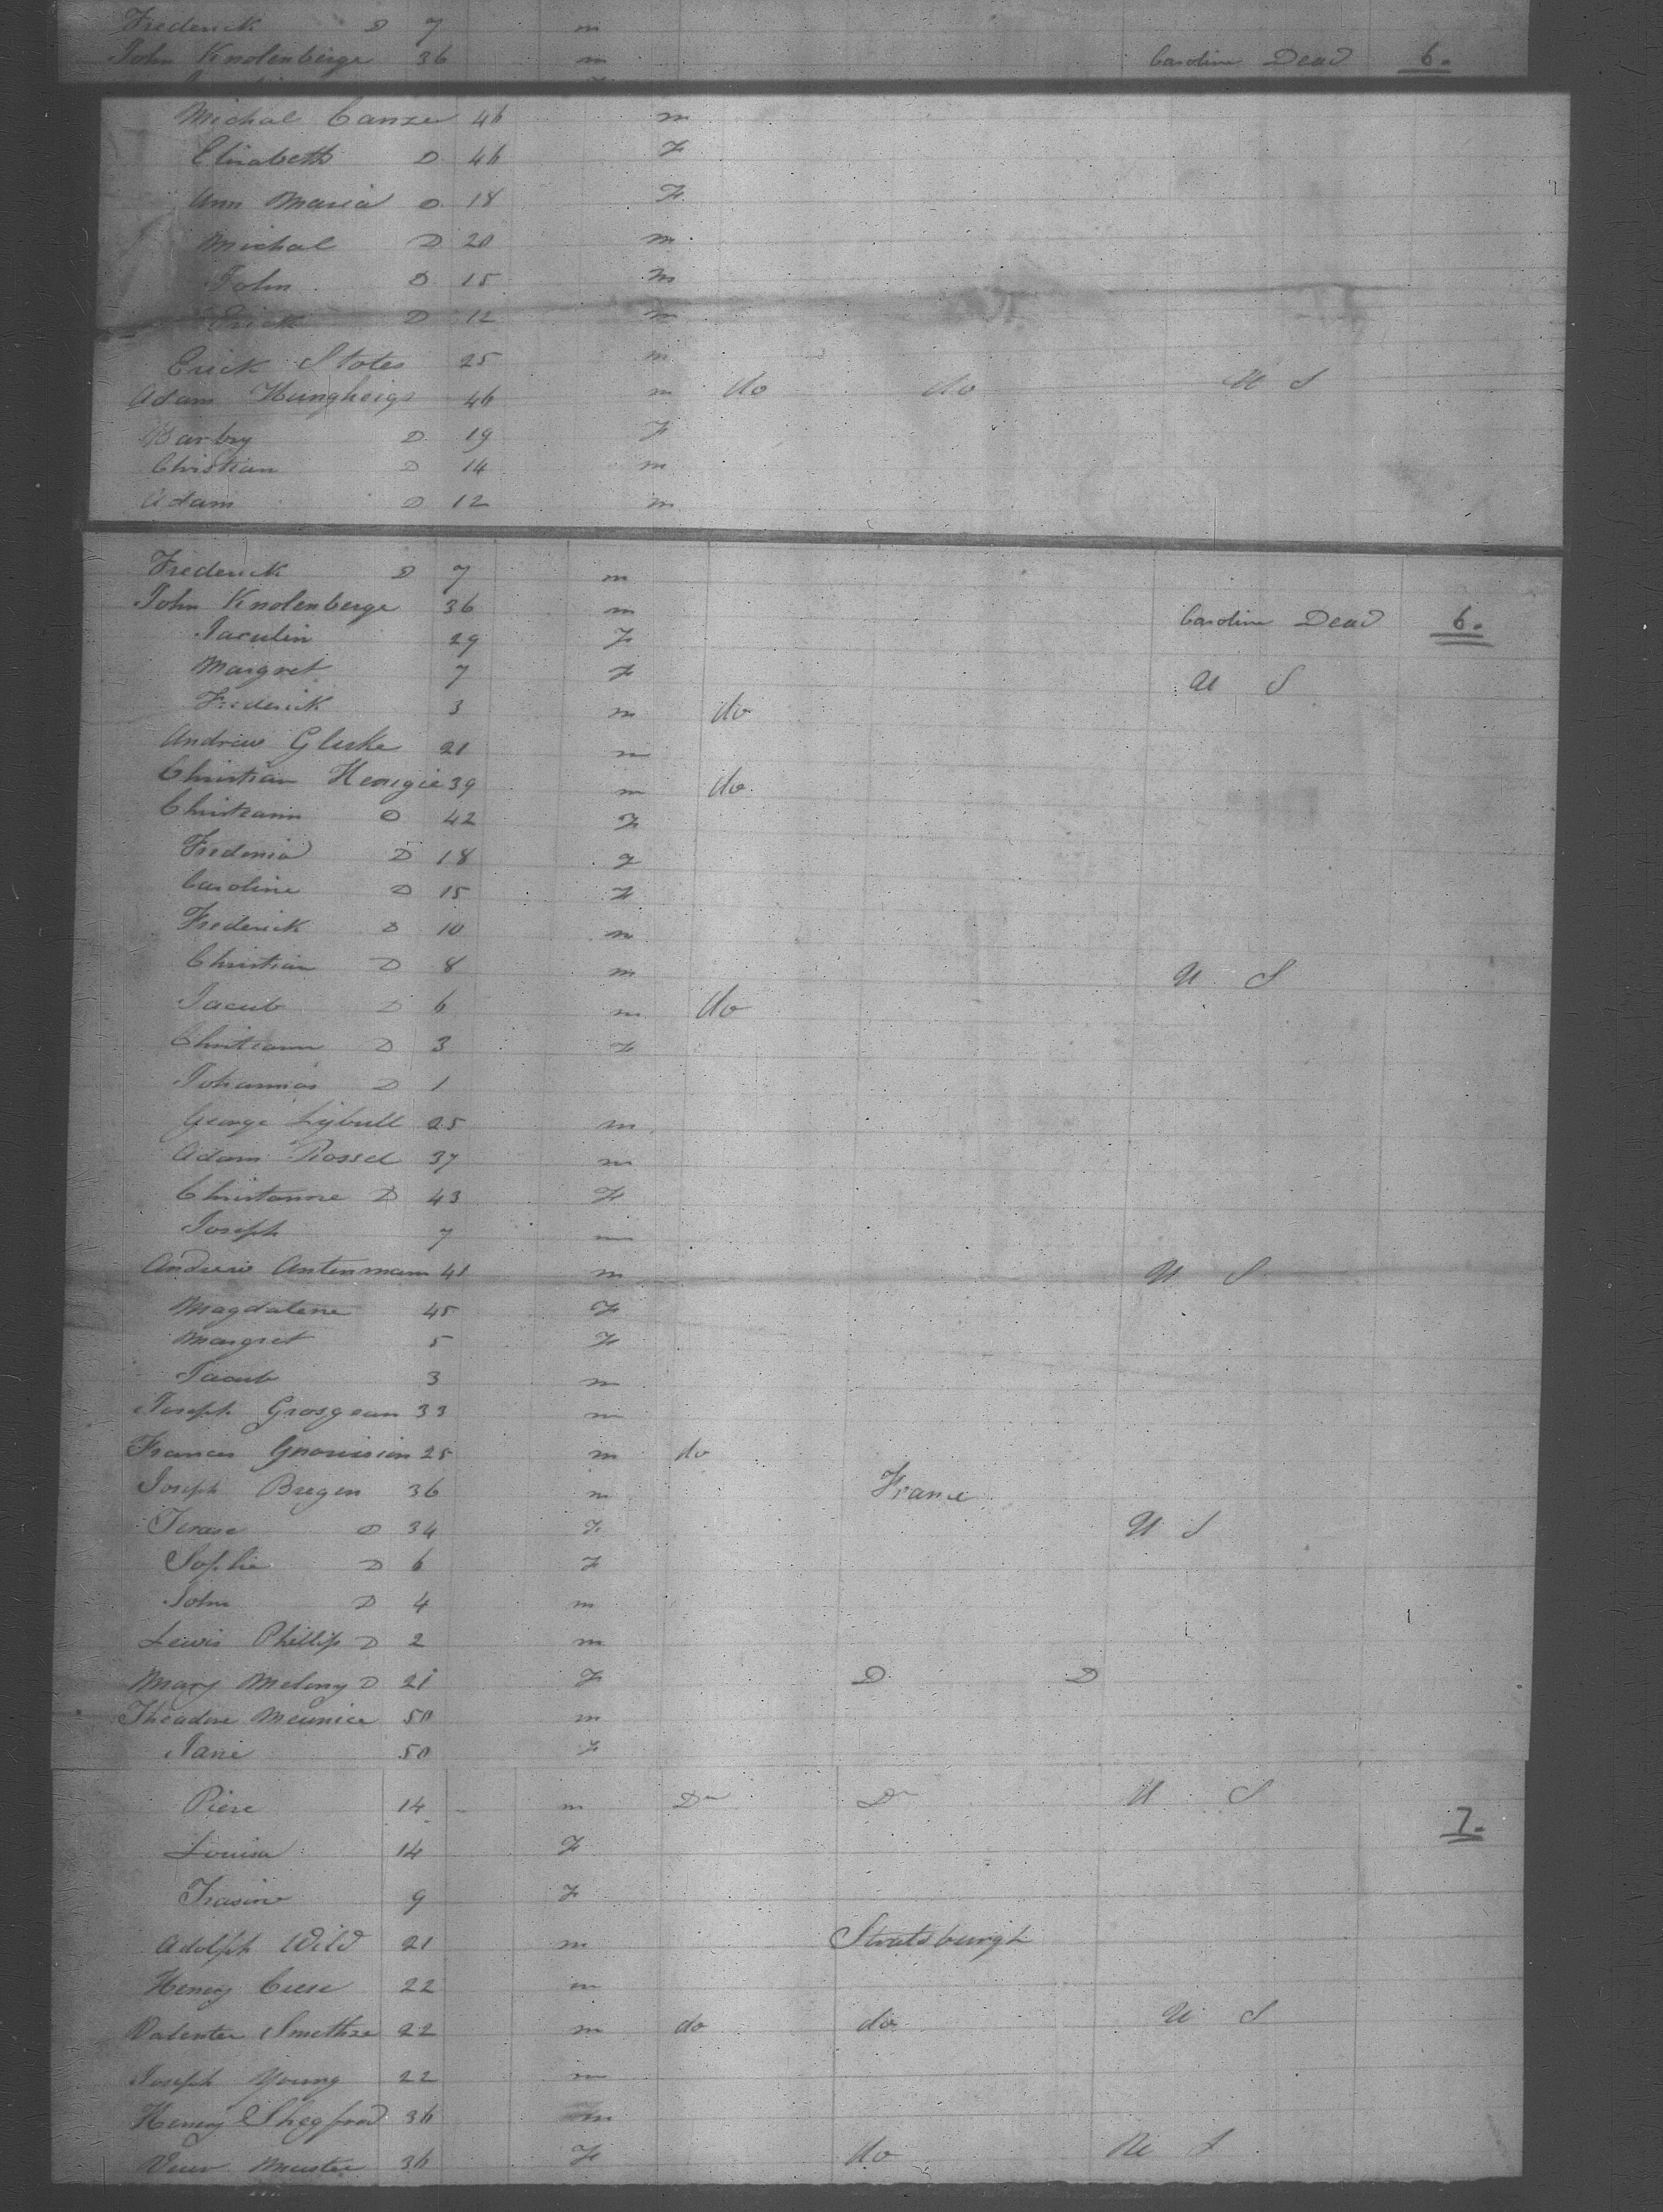 Frederick D 7 m
John Knolenberge 36 m Caroline Dead 6.
Michal Canzer 46 m
Elisabeth D 46 F
Ann Maria D 18 F
Michal D 20 m
John D 15 m
Erick D 12 m
Erick Stotes 25 m
Adam 46 m do do U S
Barbry D 19 F
Christian D 14 m
Adam D 12 m
Frederick D 7 m
John Knolenberge 36 m Caroline Dead 6.
Jaculin 29 F
Margret 7 F U S
Frederick 3 m do
Andrew Gluke 21 m
Christian Hengie 39 m do
Christiann D 42 F
Fredonia D 18
Caroline D 15 F
Frederick D 10 m
Christian D 8 m U S
Jacub D 6 m do
Christiann D 3 F
Johannias D 1
George Lybull 25 m
Adam Rossel 37 m
Christanne D 43 F
Joseph 7 m
Andrew Antenmann 41 m U S
Magdalene 45 F
Margret 5 F
Jacub 3 m
Joseph Grosgean 33 m
Frances 25 m do
Joseph Bregen 36 m France
Terase D 34 F U S
Sophie D 6 F
John D 4 m
Lewis Phillip D 2 m
Mary Melony D 21 F D D
Theadore Meunice 50 m
Jane 50 F
Piere 14 m Do Do U S 7.
Louisa 14 F
Frasine 9 F
Adolph Wild 21 m Stratsburgh
Henry Cuse 22 m
Valenter Smethze 22 m do do U S
Joseph Young 22 m
Henry 36 m
Meuster 36 F do U S